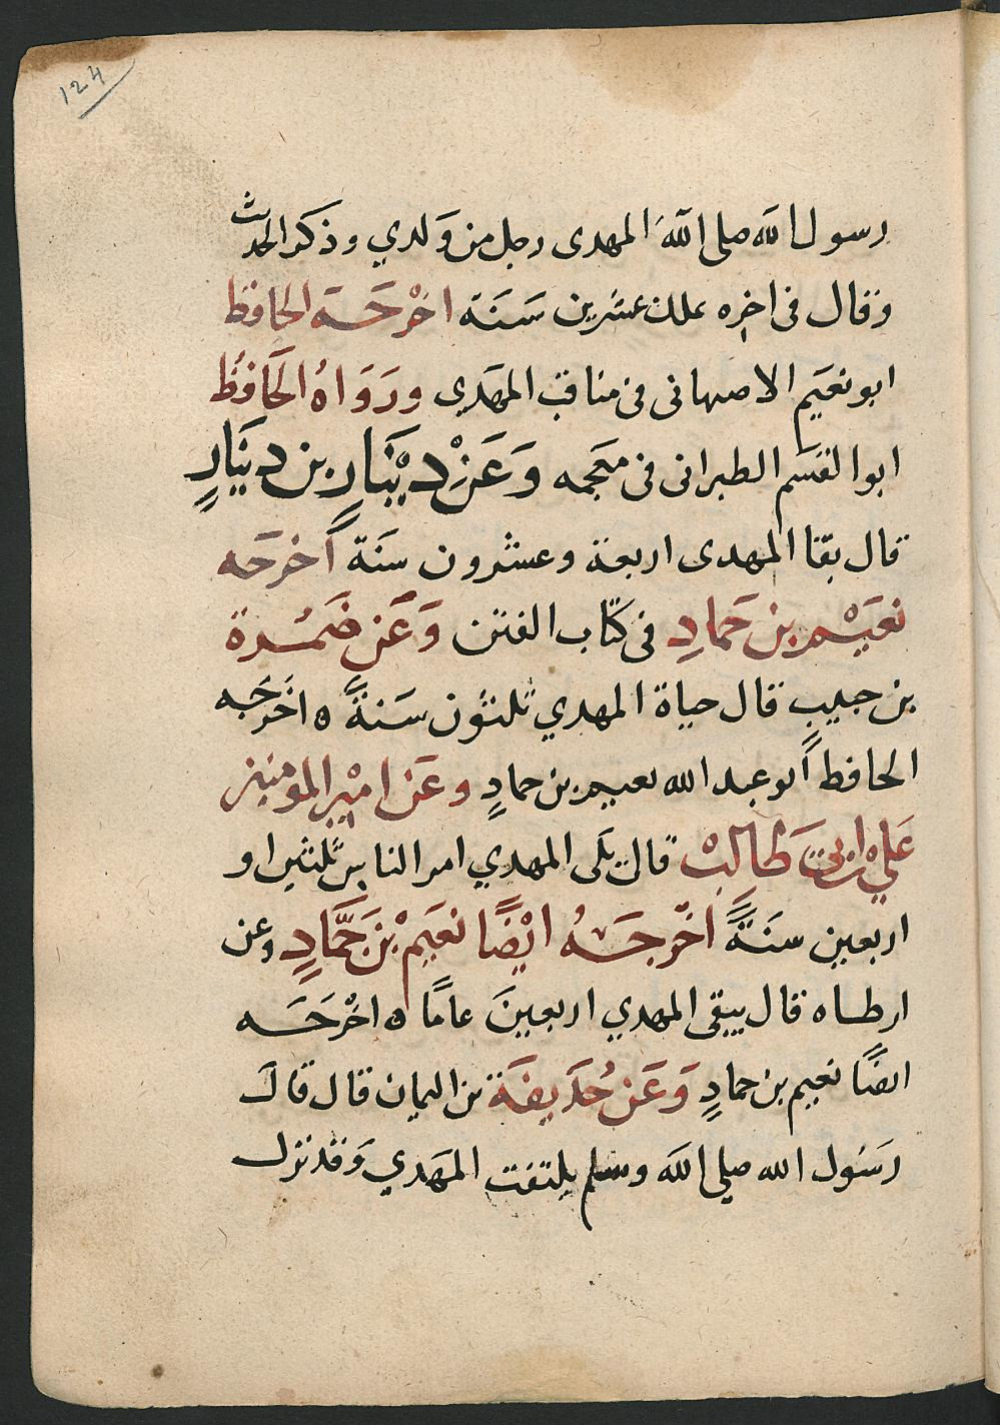 124
رسول الله صلى الله المهدى رجل من وَلدي وذكر الحديث
وقال فى اخره يملك عشرين سَنَة اخْرجَه الحافظ
ابو نعَيم الاصبهانى فى مناقب المهَدِي ورَوَاهُ الحَافظُ
ابو القسم الطبرانى فى معجمه وَعَنْ دِيْنَارِ بن دينَارٍ
قال بقا المهدى اربعة وعشرون سنَة أخرجَه
نعَيْم بن حَمادٍ فى كتاب الفتن وَعَن ضَمْرة
بن حبيبٍ قال حياة المهدي ثلثون سَنةً ه اخَرجَه
الحافظ أبو عبد الله نعيم بن حمادٍ وعَن امْير المومنين
عَليْ ابن ابي طَالبْ قال يلى المهدي امر الناس ثلثين او
اربعين سنَةً اخْرجَهُ ايْضًا نعَيم بْن حَمَّادٍ وعن
ارطاه قال يبقى المهدي اربعينَ عامًا ه اخْرَجَه
ايضًا نعيم بن حمادٍ وَعَن حُذَيفَة بن اليمان قال قالَ
رسَول الله صلي الله وسلم يلتفت المهَدي وَقد نزل